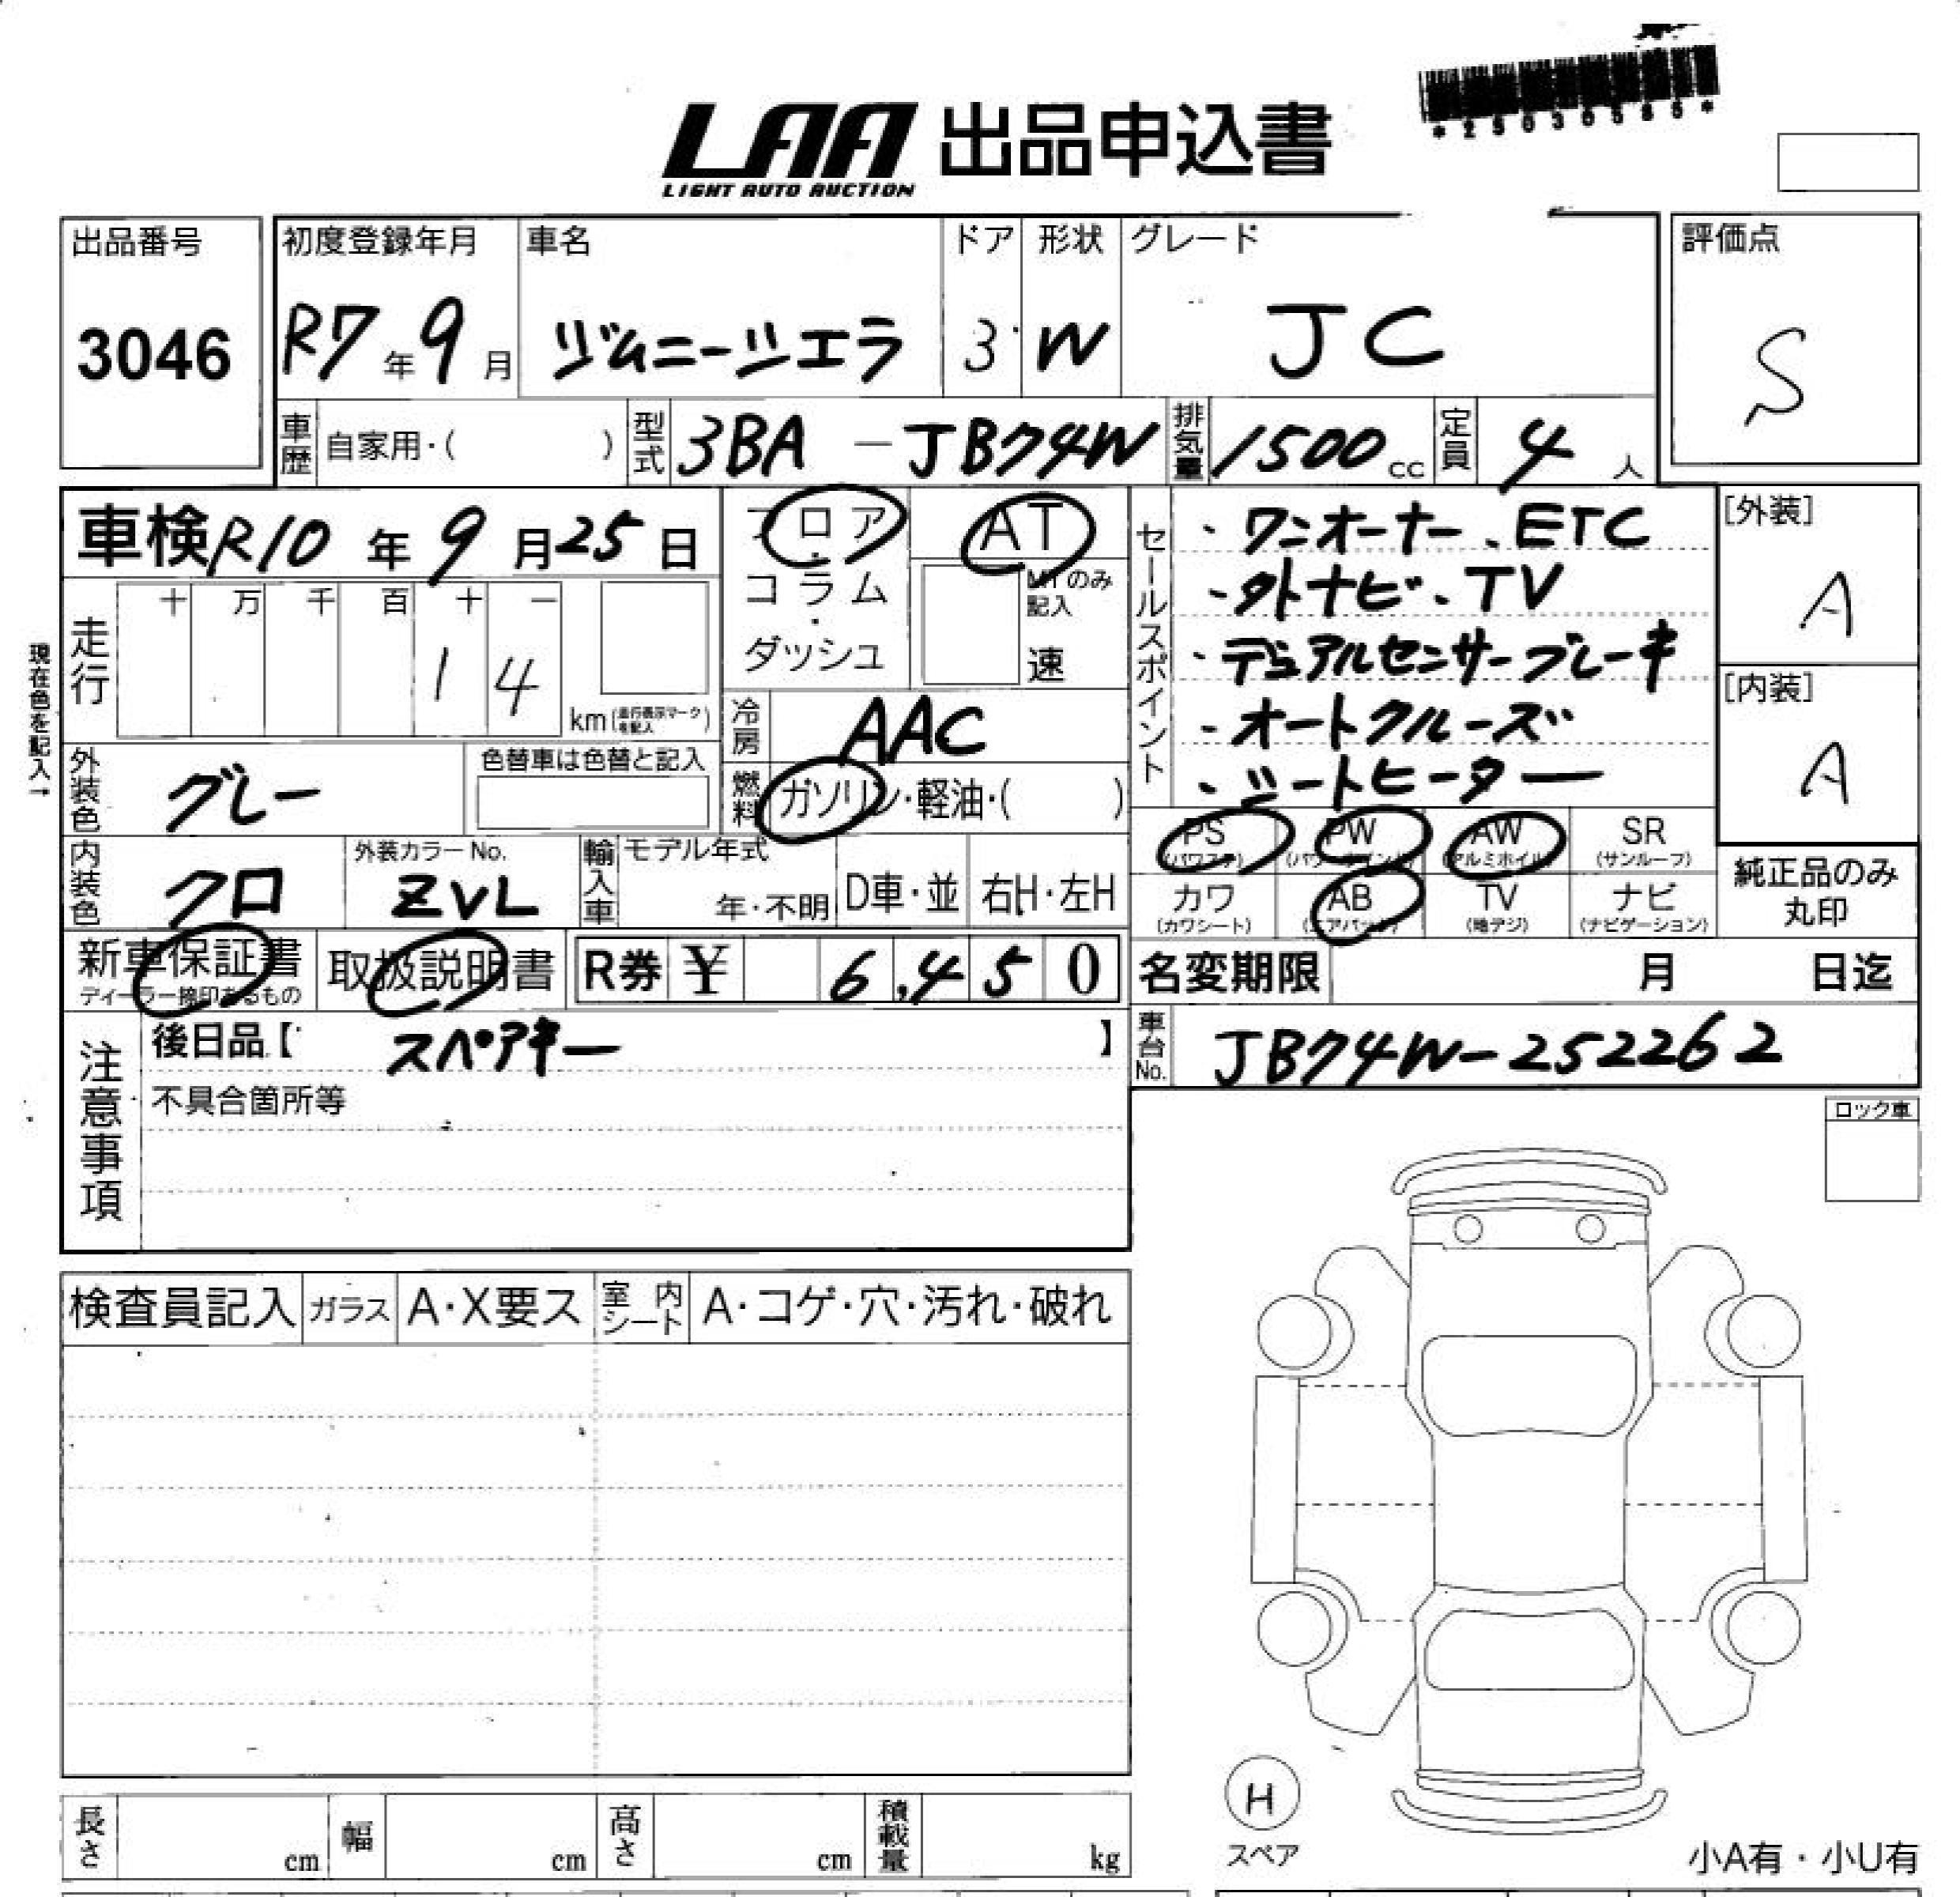 *25030580*
LAA 出品申込書
LIGHT AUTO AUCTION
出品番号
3046
初度登録年月
R7年9月
車名
ジムニーシエラ
ドア
3
形状
W
グレード
JC
評価点
S
車歴 自家用・( )
型式 3BA-JB74W
排気量 1500cc
定員 4人
車検 R10年9月25日
フロア・コラム・ダッシュ
AT
MTのみ記入
速
セールスポイント
・ワンオーナー、ETC
・外ナビ・TV
・デュアルセンサーブレーキ
・オートクルーズ
・シートヒーター
[外装]
A
[内装]
A
現在色を記入→
走行
十 万 千 百 十 一
1 4
km(走行表示マークを記入)
冷房 AAC
外装色 グレー
色替車は色替と記入
燃料 ガソリン・軽油・( )
PS (パワステ)
PW (パワーウインド)
AW (アルミホイル)
SR (サンルーフ)
カワ (カワシート)
AB (エアバッグ)
TV (地デジ)
ナビ (ナビゲーション)
純正品のみ丸印
内装色 クロ
外装カラーNo.
ZVL
輸入車
モデル年式
年・不明
D車・並
右H・左H
新車保証書
ディーラー捺印あるもの
取扱説明書
R券 ¥ 6,450
名変期限 月 日迄
車台No. JB74W-252262
注意事項
後日品【 スペアキー 】
不具合箇所等
ロック車
検査員記入
ガラス A・X要ス
室内シート A・コゲ・穴・汚れ・破れ
長さ cm
幅 cm
高さ cm
積載量 kg
H
スペア
小A有・小U有